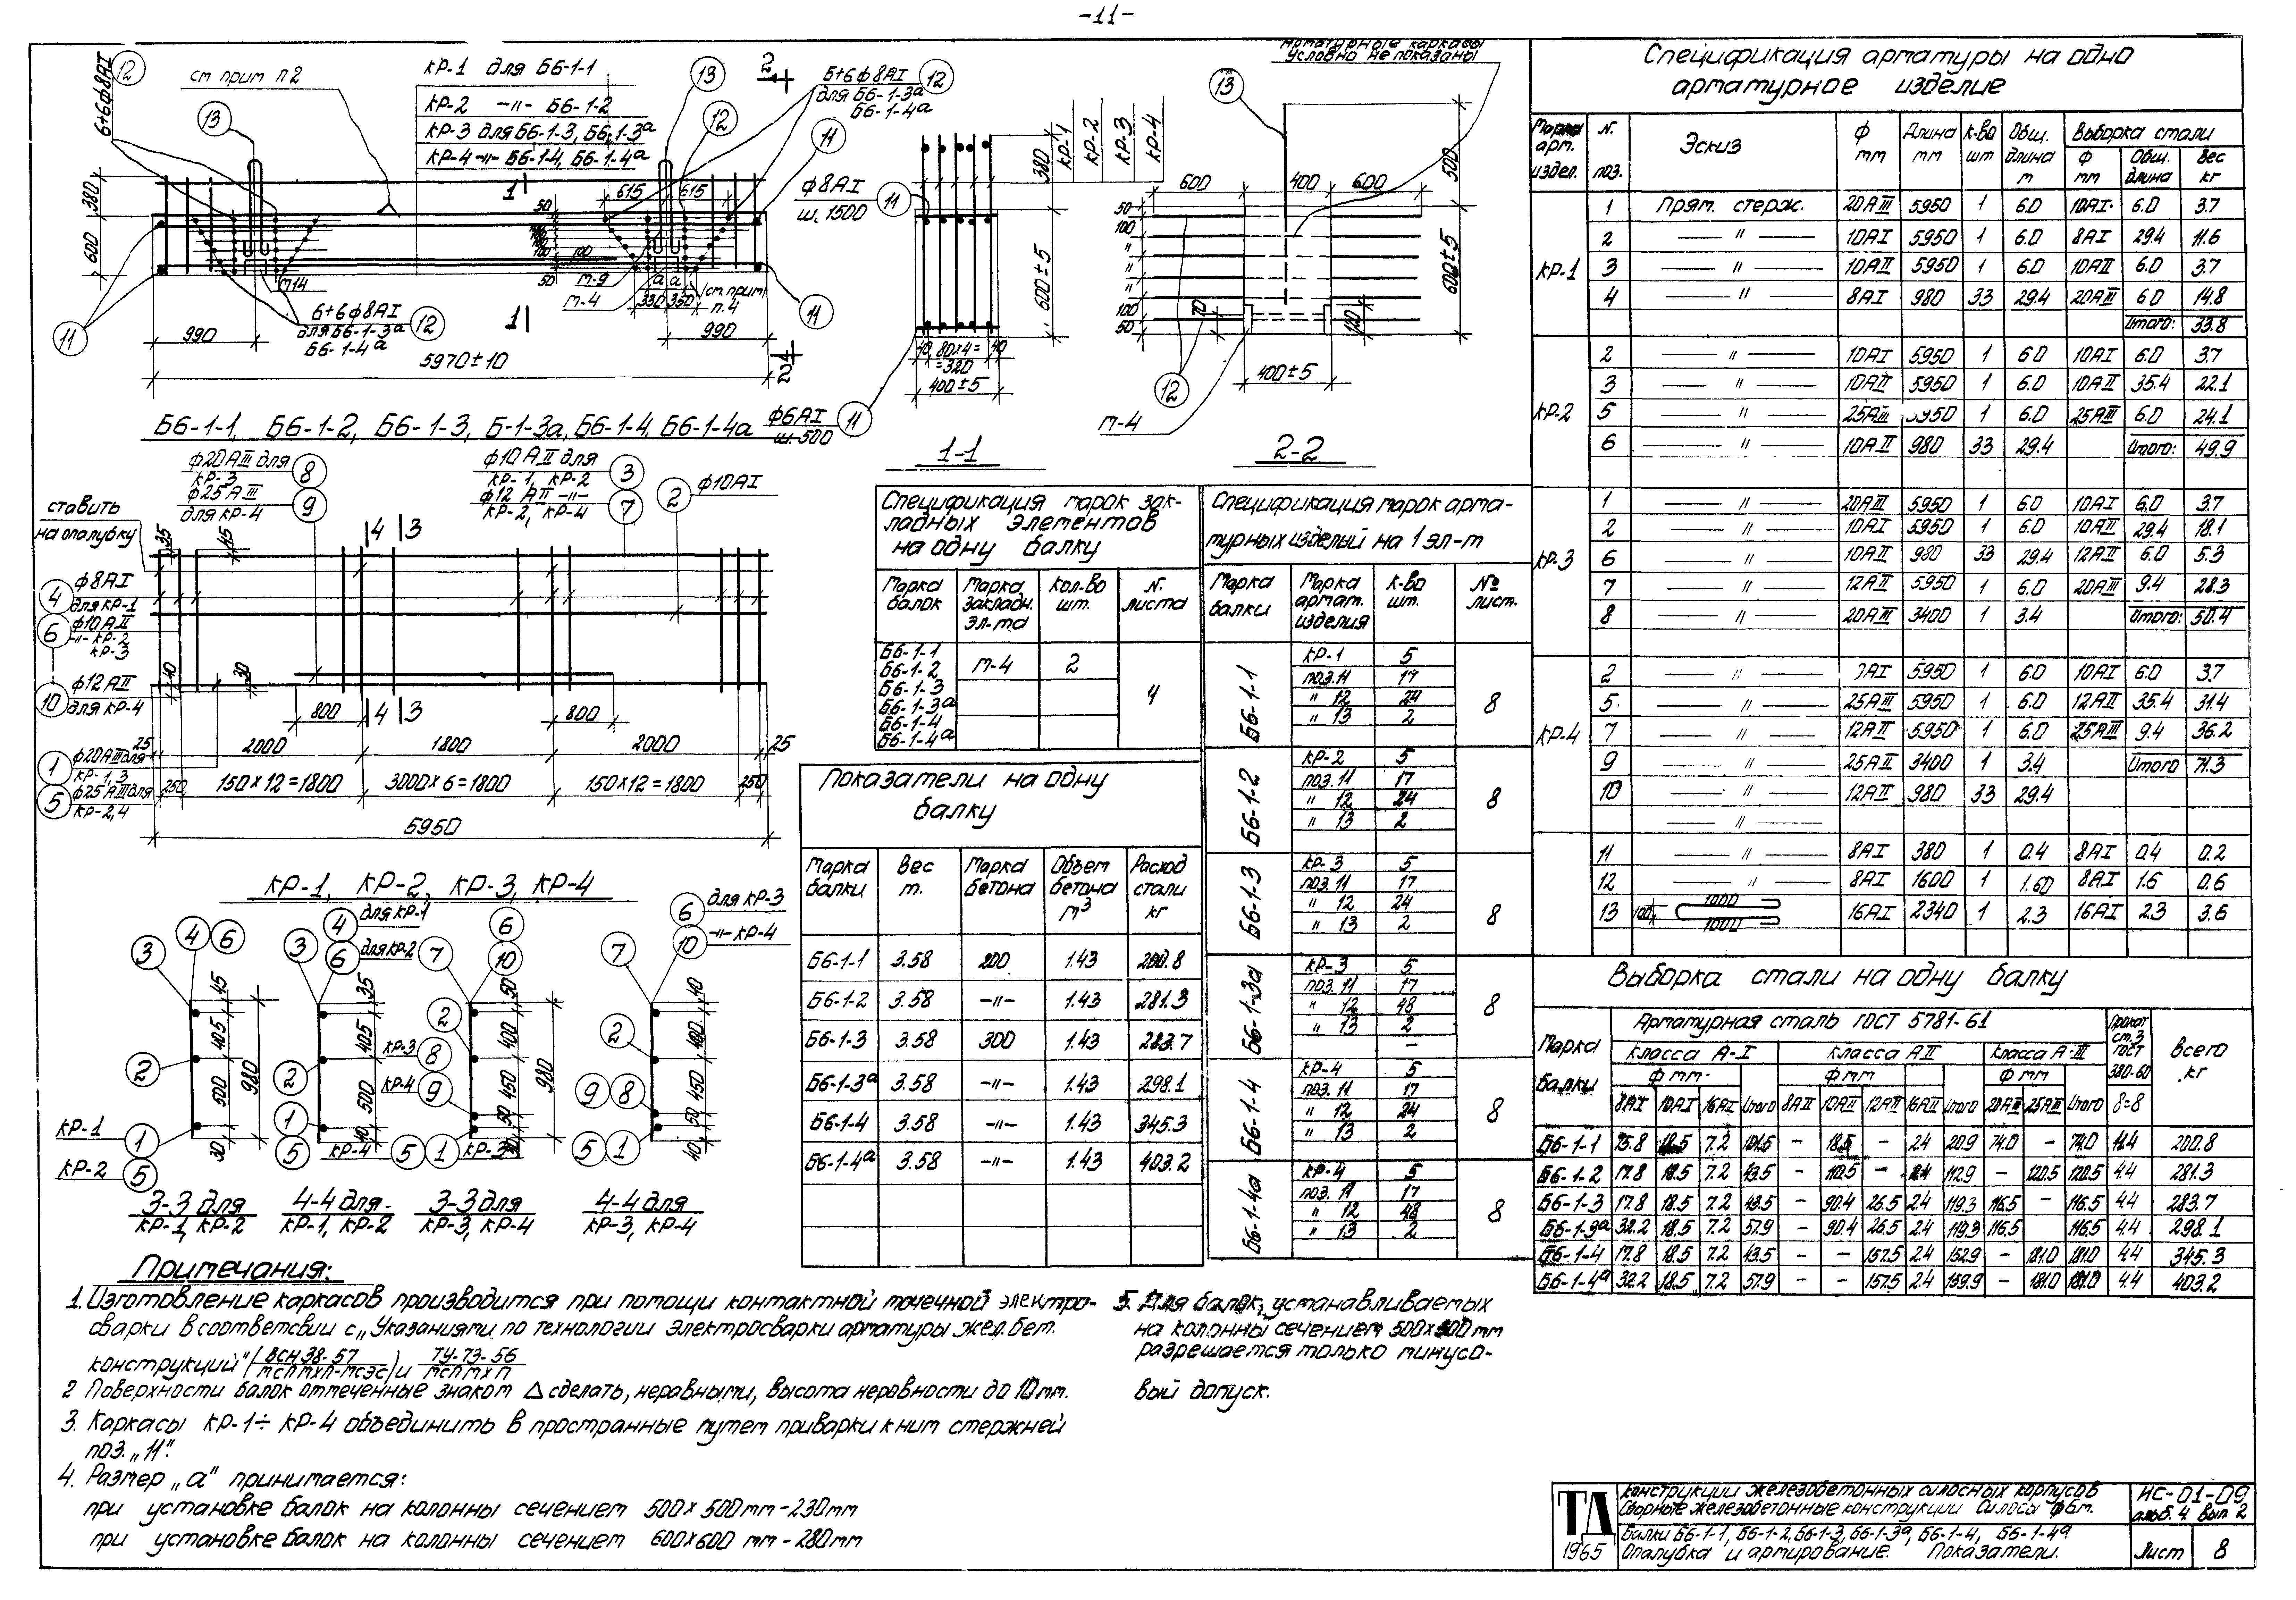 -11-
см прим п2
КР-1 для Б6-1-1
КР-2 -〃- Б6-1-2
КР-3 для Б6-1-3, Б6-1-3а
КР-4 -〃- Б6-1-4, Б6-1-4а
6+6ф8АI
12
13
13
2
12
6+6ф8АI
для Б6-1-3а
Б6-1-4а
12
11
380
600
1
615 615
50
100
50
М14
М-9
М-4
а а
330 350
см прим
п.4
11
11
6+6ф8АI
для Б6-1-3а
Б6-1-4а
12
1
990
990
5970±10
2
Б6-1-1, Б6-1-2, Б6-1-3, Б-1-3а, Б6-1-4, Б6-1-4а
ф8АI
ш. 1500
11
380
КР-1
КР-2
КР-3
КР-4
600±5
40 80х4= 40
=320
400±5
ф6АI
ш. 500
11
1-1
Арматурные каркасы
условно не показаны
13
600 400 600
500
600±5
50
100
〃
〃
〃
100
50
70
120
12
400±5
М-4
2-2
ф20АIII для
КР-3
8
ф25АIII
для КР-4
9
ф10АII для
КР-1, КР-2
3
ф12АII -〃-
КР-2, КР-4
7
2
ф10АI
ставить
на опалубку
35
45
4 3
4
ф8АI
для КР-1
6
ф10АII
-〃- КР-2
КР-3
10
ф12АII
для КР-4
40
30
800 4 3 800
25 2000 1800 2000 25
1
ф20АIII для
КР-1,3
5
ф25АIII для
КР-2,4
250 150х12=1800 3000х6=1800 150х12=1800 250
5950
КР-1, КР-2, КР-3, КР-4
3
4 6
45
405
500
30
980
2
КР-1
1
КР-2
5
3-3 для
КР-1, КР-2
4
для КР-1
3
6
для КР-2
35
405
500
40
2
1
5
4-4 для
КР-1, КР-2
7
6
10
50
400
450
50
980
2
КР-3
8
КР-4
9
КР-4
5 1
КР-3
3-3 для
КР-3, КР-4
6
для КР-3
7
10
-〃- КР-4
40
400
450
50
40
2
9 8
5 1
4-4 для
КР-3, КР-4
Спецификация марок зак-
ладных элементов
на одну балку
Марка балок Марка закладн. эл-та Кол-во шт. N. листа
Б6-1-1
Б6-1-2 М-4 2
Б6-1-3
Б6-1-3а 4
Б6-1-4
Б6-1-4а
Показатели на одну
балку
Марка балки Вес т. Марка бетона Объем бетона м3 Расход стали кг
Б6-1-1 3.58 200 1.43 200.8
Б6-1-2 3.58 -〃- 1.43 281.3
Б6-1-3 3.58 300 1.43 283.7
Б6-1-3а 3.58 -〃- 1.43 298.1
Б6-1-4 3.58 -〃- 1.43 345.3
Б6-1-4а 3.58 -〃- 1.43 403.2
Спецификация марок арма-
турных изделий на 1 эл-т
Марка балки Марка армат. изделия К-во шт. №№ лист.
Б6-1-1 КР-1 5 8
поз. 11 17
〃 12 24
〃 13 2
Б6-1-2 КР-2 5 8
поз. 11 17
〃 12 24
〃 13 2
Б6-1-3 КР-3 5 8
поз. 11 17
〃 12 24
〃 13 2
Б6-1-3а КР-3 5 8
поз. 11 17
〃 12 48
〃 13 2
-
Б6-1-4 КР-4 5 8
поз. 11 17
〃 12 24
〃 13 2
Б6-1-4а КР-4 5 8
поз. 11 17
〃 12 48
〃 13 2
Спецификация арматуры на одно
арматурное изделие
Марка арм. издел. N. поз. Эскиз ф мм Длина мм К-во шт Общ. длина м Выборка стали ф мм Общ. длина Вес кг
КР-1
1 Прям. стерж. 20АIII 5950 1 6.0 10АI 6.0 3.7
2 〃 10АI 5950 1 6.0 8АI 29.4 11.6
3 〃 10АII 5950 1 6.0 10АII 6.0 3.7
4 〃 8АI 980 33 29.4 20АIII 6.0 14.8
Итого: 33.8
КР-2
2 〃 10АI 5950 1 6.0 10АI 6.0 3.7
3 〃 10АII 5950 1 6.0 10АII 35.4 22.1
5 〃 25АIII 5950 1 6.0 25АIII 6.0 24.1
6 〃 10АII 980 33 29.4 Итого: 49.9
КР-3
1 〃 20АIII 5950 1 6.0 10АI 6.0 3.7
2 〃 10АI 5950 1 6.0 10АII 29.4 18.1
6 〃 10АII 980 33 29.4 12АII 6.0 5.3
7 〃 12АII 5950 1 6.0 20АIII 9.4 28.3
8 〃 20АIII 3400 1 3.4 Итого: 50.4
КР-4
2 〃 5950 1 6.0 10АI 6.0 3.7
5 〃 25АIII 5950 1 6.0 12АII 35.4 31.4
7 〃 12АII 5950 1 6.0 25АIII 9.4 36.2
9 〃 25АII 3400 1 3.4 Итого 71.3
10 〃 12АII 980 33 29.4
〃
11 〃 8АI 380 1 0.4 8АI 0.4 0.2
12 〃 8АI 1600 1 1.60 8АI 1.6 0.6
13 100 1000 1000 16АI 2340 1 2.3 16АI 2.3 3.6
Выборка стали на одну балку
Марка балки Арматурная сталь ГОСТ 5781-61 Прокат ст.3 ГОСТ 380-60 Всего кг
Класса А-I Класса АII Класса А-III
ф мм ф мм ф мм
8АI 10АI 16АI Итого 8АII 10АII 12АII 16АII Итого 20АIII 25АIII Итого δ=8
Б6-1-1 75.8 18.5 7.2 101.5 - 18.5 - 2.4 20.9 74.0 - 74.0 4.4 200.8
Б6-1-2 17.8 18.5 7.2 43.5 - 110.5 - 2.4 112.9 - 120.5 120.5 4.4 281.3
Б6-1-3 17.8 18.5 7.2 43.5 - 90.4 26.5 2.4 119.3 116.5 - 116.5 4.4 283.7
Б6-1-3а 32.2 18.5 7.2 57.9 - 90.4 26.5 2.4 119.3 116.5 116.5 4.4 298.1
Б6-1-4 17.8 18.5 7.2 43.5 - - 157.5 2.4 152.9 - 181.0 181.0 4.4 345.3
Б6-1-4а 32.2 18.5 7.2 57.9 - - 157.5 2.4 159.9 - 181.0 181.0 4.4 403.2
Примечания:
1. Изготовление каркасов производится при помощи контактной точечной электро-
сварки в соответсвии с „Указаниями по технологии электросварки арматуры жел. бет.
конструкций" (ВСН 38-57/МСПМХП-МСЭС) и ТУ-73-56/МСПМХП
2 Поверхности балок отмеченные знаком Δ сделать, неравными, высота неровности до 10мм.
3. Каркасы КР-1÷КР-4 объединить в пространные путем приварки к ним стержней
поз. „11".
4. Размер „а" принимается:
при установке балок на колонны сечением 500х500мм-230мм
при установке балок на колонны сечением 600х600 мм-280мм
5. Для балок, устанавливаемых
на колонны сечением 500х500мм
разрешается только минусо-
вый допуск.
ТД
1965
Конструкции железобетонных силосных корпусов
Сборные железобетонные конструкции Силосы ф6м.
Балки Б6-1-1, Б6-1-2, Б6-1-3, Б6-1-3а, Б6-1-4, Б6-1-4а
Опалубка и армирование. Показатели.
ИС-01-09
альб. 4 вып 2
Лист 8